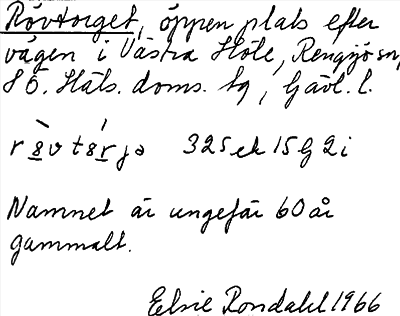 Rövtorget, öppen plats efter
vägen i Västra Höle, Rengsjö sn,
SÖ. Häls. doms. sg, Gävl. l.
325 ek 15 G 2 i
Namnet är ungefär 60 år
gammalt.
Elsie Rondahl 1966